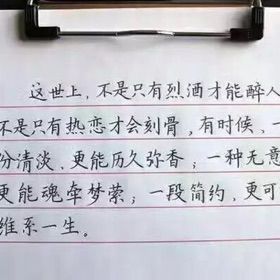 这世上，不是只有烈酒才能醉人
不是只有热恋才会刻骨，有时候，一
份清淡，更能历久弥香；一种无意
更能魂牵梦萦；一段简约，更可
维系一生。